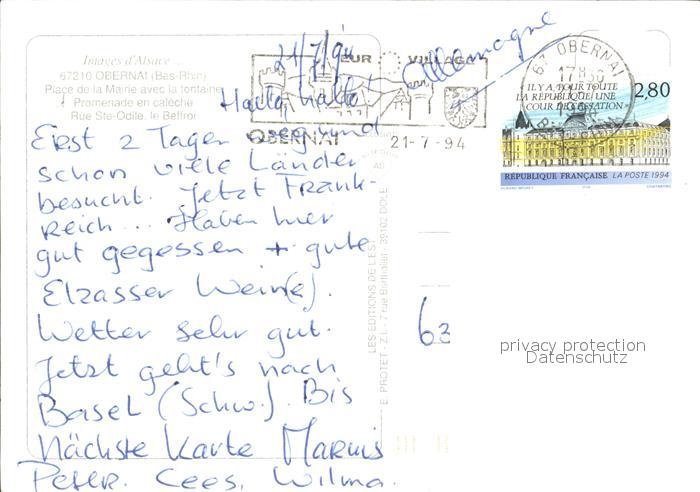 Images d'Alsace ...
67210 OBERNAI (Bas-Rhin)
Place de la Mairie avec la fontaine
Promenade en calèche
Rue Ste-Odile, le Beffroi
21/7/94
Allemagne
Hallo, hallo!
Erst 2 Tagen weg und
schon viele Länder
besucht. Jetzt Frank-
reich... Haben hier
gut gegessen + gute
Elzasser Wein(e).
Wetter sehr gut.
Jetzt geht's nach
Basel (Schw.). Bis
Nächste Karte Marius
Peter. Cees, Wilma.
VILLAGE
OBERNAI 21-7-94
67 OBERNAI
17H30
«IL Y A POUR TOUTE
LA RÉPUBLIQUE UNE
COUR DE CASSATION»
2,80
RÉPUBLIQUE FRANÇAISE LA POSTE 1994
LES EDITIONS DE L'EST
E. PROTET - Z.I. - 7 rue Berthollet - 39102 DOLE
63
privacy protection
Datenschutz